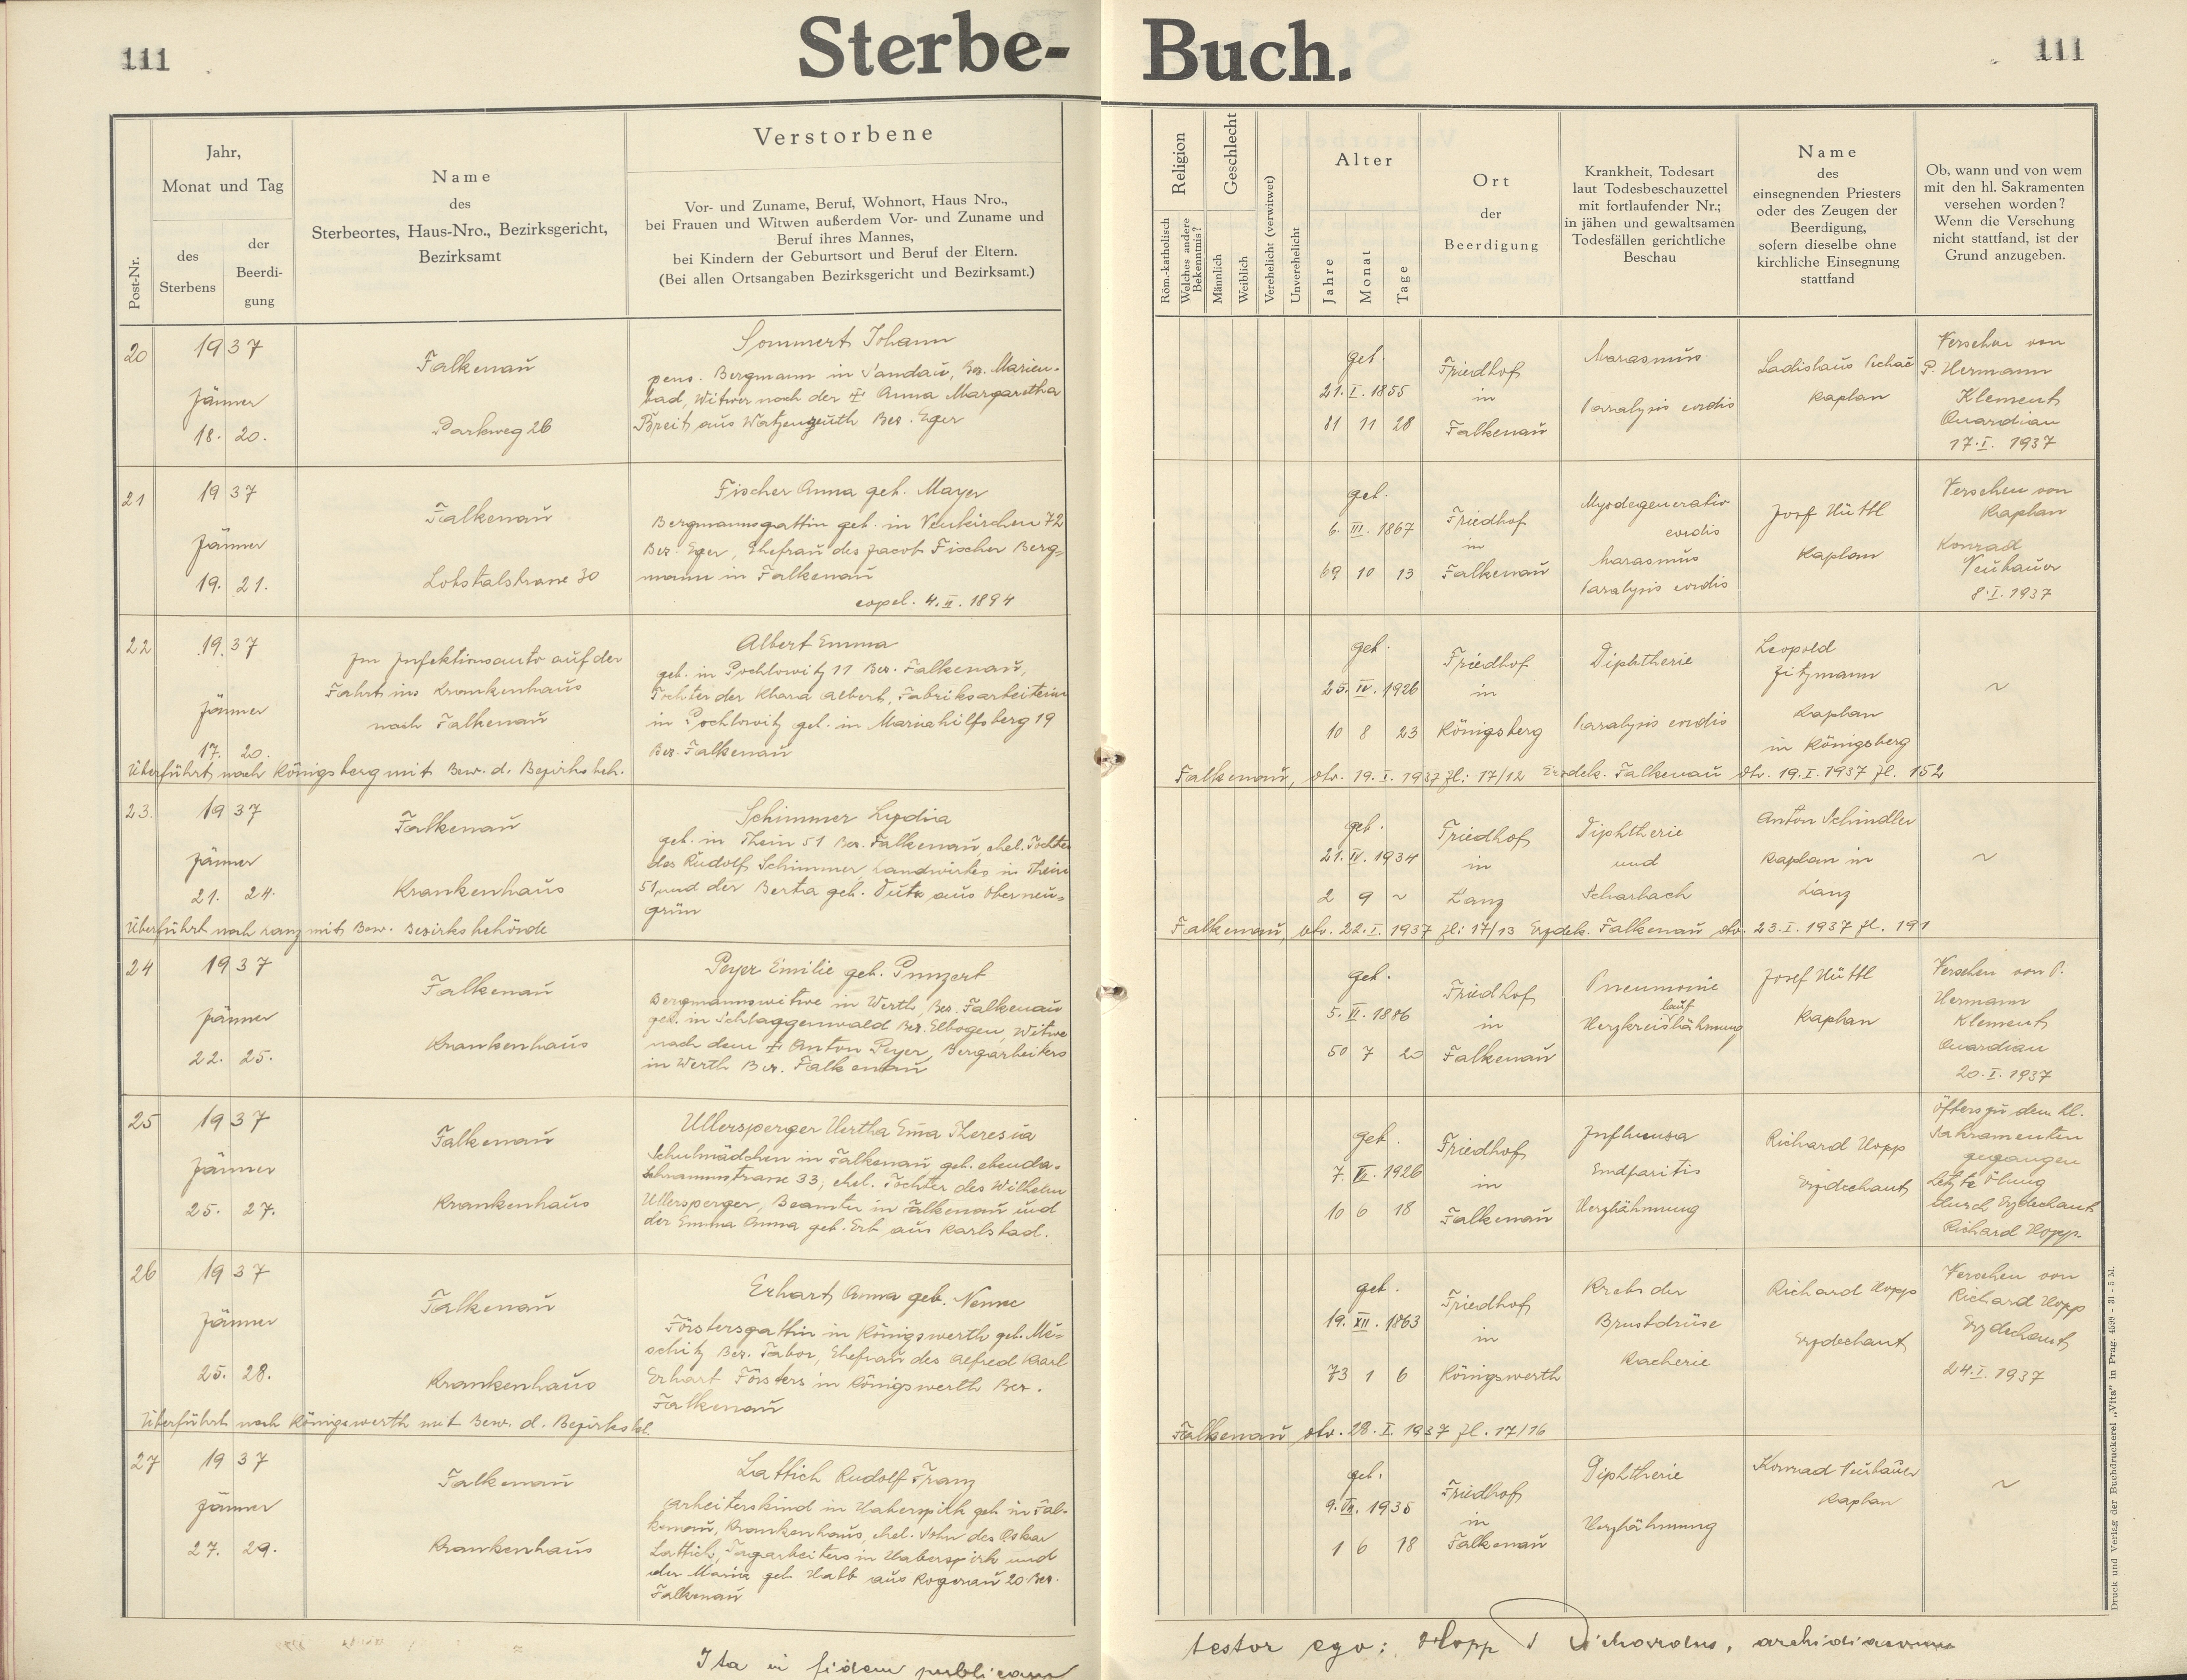 111
Sterbe-Buch.
111
Post-Nr.
Jahr,
Monat und Tag
des
Sterbens
der
Beerdi-
gung
Name
des
Sterbeortes, Haus-Nro., Bezirksgericht,
Bezirksamt
Verstorbene
Vor- und Zuname, Beruf, Wohnort, Haus Nro.,
bei Frauen und Witwen außerdem Vor- und Zuname und
Beruf ihres Mannes,
bei Kindern der Geburtsort und Beruf der Eltern.
(Bei allen Ortsangaben Bezirksgericht und Bezirksamt.)
Religion
Röm.-katholisch
Welches andere
Bekenntnis?
Geschlecht
Männlich
Weiblich
Verehelicht (verwitwet)
Unverehelicht
Alter
Jahre
Monat
Tage
Ort
der
Beerdigung
Krankheit, Todesart
laut Todesbeschauzettel
mit fortlaufender Nr.;
in jähen und gewaltsamen
Todesfällen gerichtliche
Beschau
Name
des
einsegnenden Priesters
oder des Zeugen der
Beerdigung,
sofern dieselbe ohne
kirchliche Einsegnung
stattfand
Ob, wann und von wem
mit den hl. Sakramenten
versehen worden?
Wenn die Versehung
nicht stattfand, ist der
Grund anzugeben.
20
1937
Jänner
18. 20.
Falkenau
Parkweg 26
Sommert Johann
pens. Bergmann in Sandau, Bez. Marien-
bad, Witwer nach der + Anna Margaretha
Breit aus Watzengeuth Bez. Eger
geb.
21. I. 1855
81 11 28
Friedhof
in
Falkenau
Marasmus
Paralysis cordis
Ladislaus
Kaplan
Versehen von
P. Hermann
Klement
Quardian
17. I. 1937
21
1937
Jänner
19. 21.
Falkenau
Lobstalstrasse 30
Fischer Anna geb. Mayer
Bergmannsgattin geb. in Neukirchen 72
Bez. Eger, Ehefrau des Jacob Fischer Berg-
mann in Falkenau
copul. 4. II. 1894
geb.
6. III. 1867
69 10 13
Friedhof
in
Falkenau
Myodegeneratio
cordis
Marasmus
Paralysis cordis
Josef Hüttl
Kaplan
Versehen von
Kaplan
Konrad
Neubauer
8. I. 1937
22
1937
Jänner
17. 20.
Im Infektionsauto auf der
Fahrt ins Krankenhaus
nach Falkenau
Albert Emma
geb. in Pochlowitz 11 Bez. Falkenau,
Tochter der Klara Albert, Fabriksarbeiterin
in Pochlowitz geb. in Mariahilfsberg 19
Bez. Falkenau
geb.
25. IV. 1926
10 8 23
Friedhof
in
Königsberg
Diphtherie
Paralysis cordis
Leopold
Zitzmann
Kaplan
in Königsberg
~
Überführt nach Königsberg mit Bew. d. Bezirksbeh. Falkenau, dto. 19. I. 1937 Zl: 17/12 Erzdek. Falkenau dto. 19. I. 1937 Zl. 152
23.
1937
Jänner
21. 24.
Falkenau
Krankenhaus
Schimmer Lydia
geb. in Thein 51 Bez. Falkenau, ehel. Tochter
des Rudolf Schimmer, Landwirtes in Thein
51, und der Berta geb. aus Oberneu-
grün
geb.
21. IV. 1934
2 9 ~
Friedhof
in
Lanz
Diphtherie
und
Scharlach
Anton Schindler
Kaplan in
Lanz
~
Überführt nach Lanz mit Bew. Bezirksbehörde Falkenau, dto. 22. I. 1937 Zl: 17/13 Erzdek. Falkenau dto. 23. I. 1937 Zl. 191
24
1937
Jänner
22. 25.
Falkenau
Krankenhaus
Peyer Emilie geb. Punzert
Bergmannswitwe in Werth, Bez. Falkenau
geb. in Schlaggenwald Bez. Elbogen, Witwe
nach dem + Anton Peyer, Bergarbeiters
in Werth Bez. Falkenau
geb.
5. VI. 1886
50 7 20
Friedhof
in
Falkenau
Pneumonie
lauf
Herzkreislähmung
Josef Hüttl
Kaplan
Versehen von P.
Hermann
Klement
Quardian
20. I. 1937
25
1937
Jänner
25. 27.
Falkenau
Krankenhaus
Ullersperger Hertha Ema Theresia
Schulmädchen in Falkenau geb. ebenda-
Schrammstrasse 33, ehel. Tochter des Wilhelm
Ullersperger, Beamter in Falkenau und
der Emma Anna geb. Erb aus Karlsbad.
geb.
7. VII. 1926
10 6 18
Friedhof
in
Falkenau
Influensa
Herzlähmung
Richard Hopp
Erzdechant
Öfters zu dem hl.
Sakramenten
gegangen
Letzte Ölung
durch Erzdechant
Richard Hopp.
26
1937
Jänner
25. 28.
Falkenau
Krankenhaus
Erhart Anna geb. Nemec
Förstersgattin in Königswerth geb. Me-
schitz Bez. Tabor, Ehefrau des Alfred Karl
Erhart Försters in Königswerth Bez.
Falkenau
geb.
19. XII. 1863
73 1 6
Friedhof
in
Königswerth
Krebs der
Brustdrüse
Kacherie
Richard Hopp
Erzdechant
Versehen von
Richard Hopp
Erzdechant
24. I. 1937
Überführt nach Königswerth mit Bew. d. Bezirksbh. Falkenau dto. 28. I. 1937 Zl. 17/16
27
1937
Jänner
27. 29.
Falkenau
Krankenhaus
Lattich Rudolf Franz
Arbeiterskind in Haberspirk geb. in Fal-
kenau, Krankenhaus, ehel. Sohn des Oskar
Lattich, Tagarbeiters in Haberspirk und
der Maria geb. Habl aus Rogenau 20 Bez.
Falkenau
geb.
9. VII. 1935
1 6 18
Friedhof
in
Falkenau
Diphtherie
Herzlähmung
Konrad Neubauer
Kaplan
~
Ita in fidem publicam testor ego: Hopp Richardus, archidiaconus
Druck und Verlag der Buchdruckerei „Vita" in Prag. 4599 - 31 - 5 M.